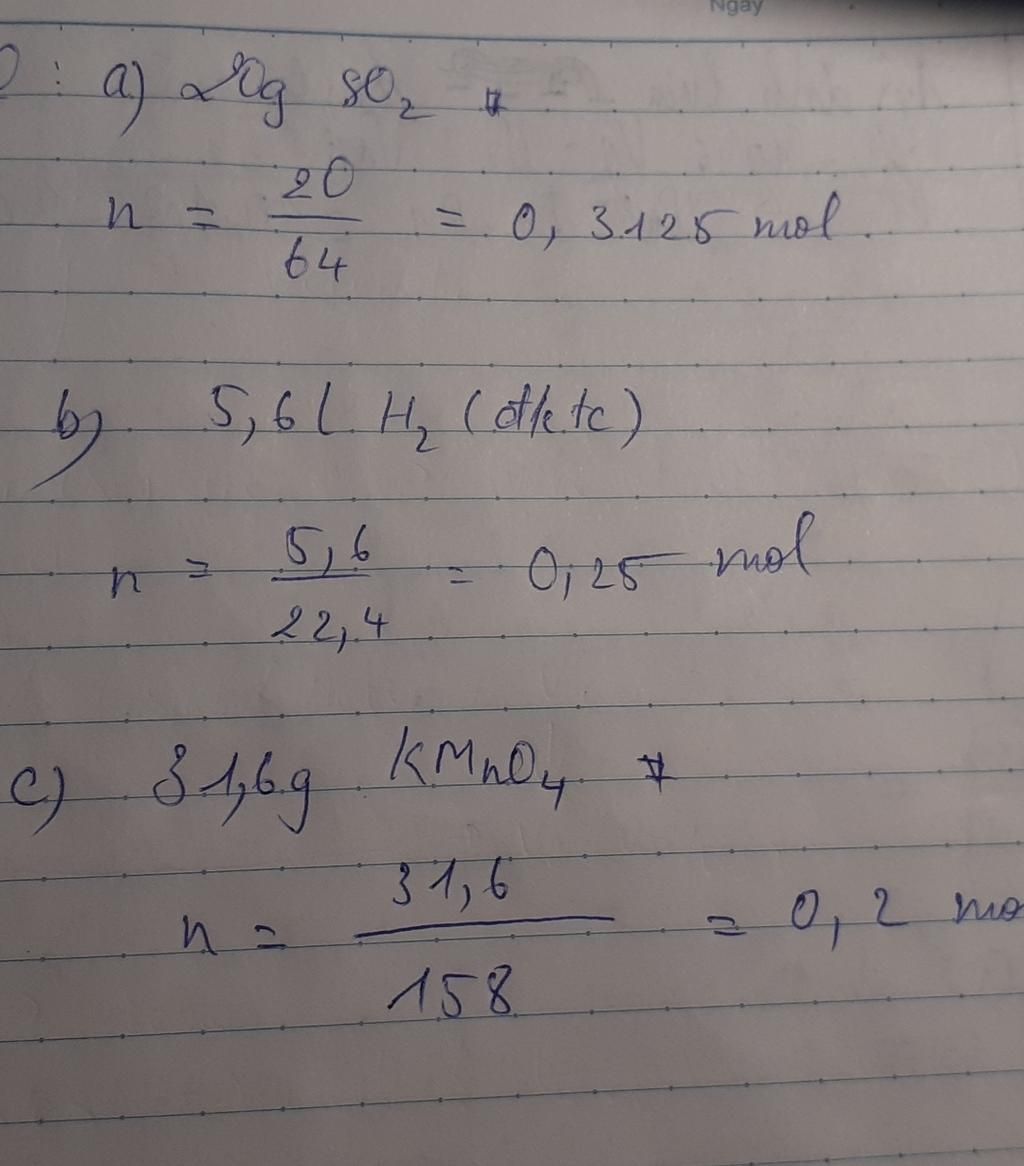 Ngày
: a) 20g SO2
n = 20/64 = 0,3125 mol.
b) 5,6l H2 (đktc)
n = 5,6/22,4 = 0,25 mol
c) 31,6g KMnO4
n = 31,6/158 = 0,2 mo